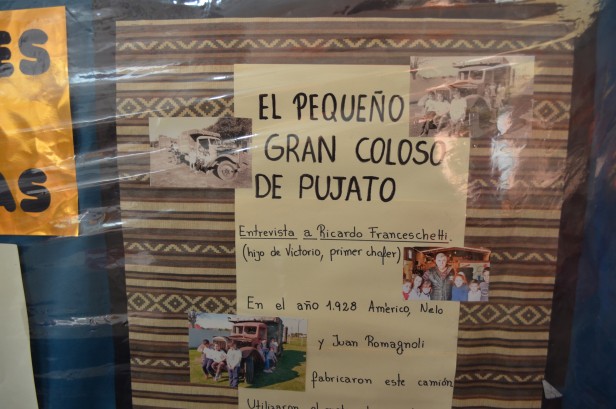 ES
AS
EL PEQUEÑO
GRAN COLOSO
DE PUJATO
Entrevista a Ricardo Franceschetti.
(hijo de Victorio, primer chofer)
En el año 1.928 Américo, Nelo
y Juan Romagnoli
fabricaron este camión
Utilizaron el